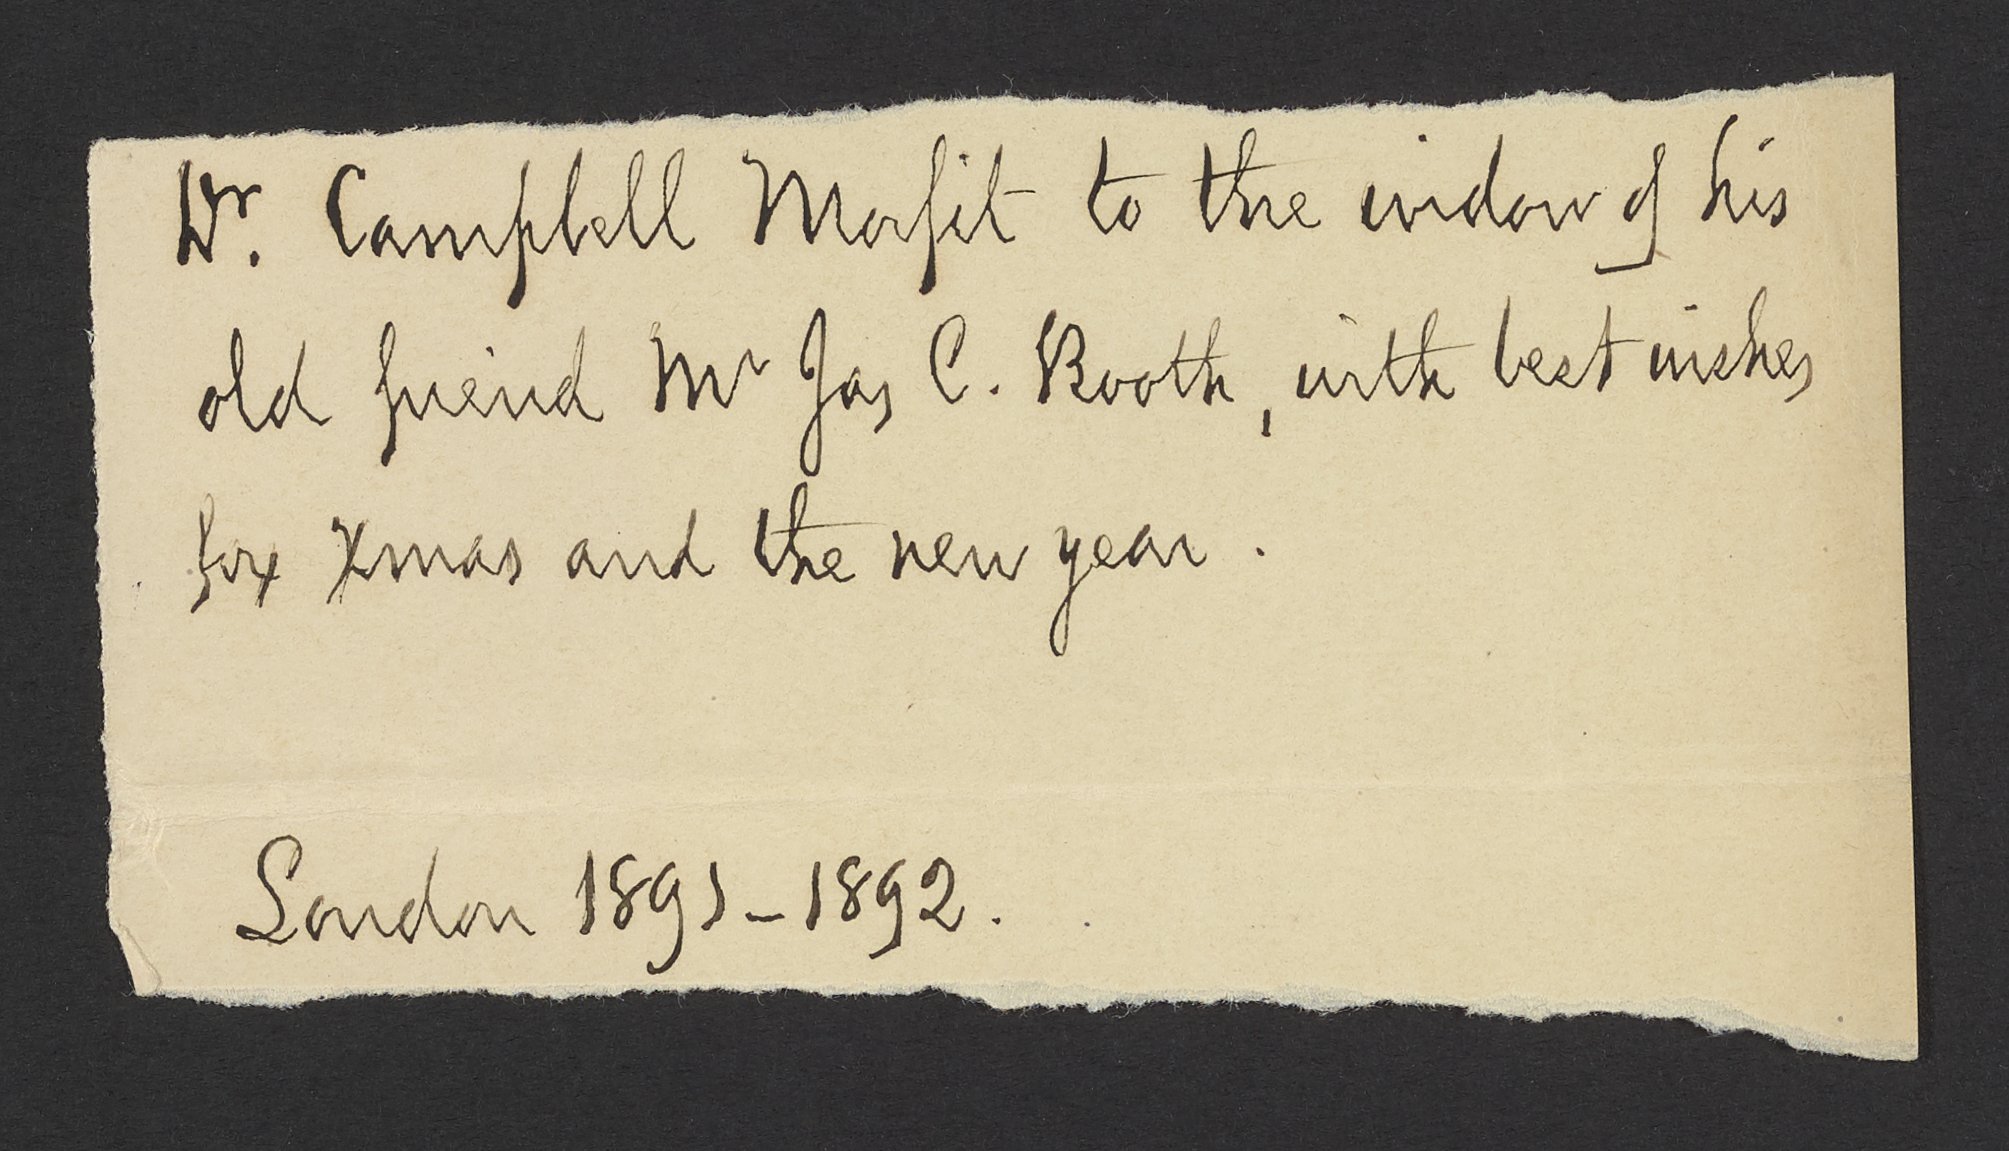 Dr. Campbell Morfit to the widow of his
old friend Mr Jas C. Booth, with best wishes
for Xmas and the new year.
London 1891-1892.